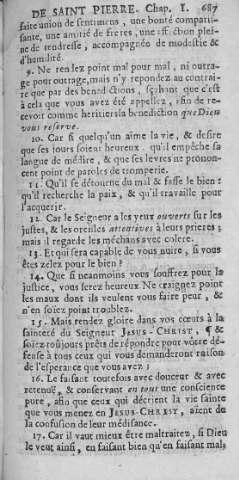 DE SAINT PIERRE. Chap. I. 687
faite union de sentimens, une bonté compatis-
sante, une amitié de freres, une affection plei-
ne de tendresse, accompagnée de modestie &
d'humilité.
9. Ne rendez point mal pour mal, ni outra-
ge pour outrage, mais n'y repondez au contrai-
re que par des benedictions, sçachant que c'est
à cela que vous avez été appellez, afin de re-
cevoir comme heritiers la benediction que Dieu
vous reserve.
10. Car si quelqu'un aime la vie, & desire
que ses jours soient heureux, qu'il empêche sa
langue de médire, & que ses levres ne pronon-
cent point de paroles de tromperie.
11. Qu'il se détourne du mal & fasse le bien:
qu'il recherche la paix, & qu'il travaille pour
l'acquerir.
12. Car le Seigneur a les yeux ouverts sur les
justes, & les oreilles attentives à leurs prieres;
mais il regarde les méchans avec colere.
13. Et qui sera capable de vous nuire, si vous
êtes zelez pour le bien?
14. Que si neanmoins vous souffrez pour la
justice, vous serez heureux. Ne craignez point
les maux dont ils veulent vous faire peur, &
n'en soiez point troublez.
15. Mais rendez gloire dans vos cœurs à la
sainteté du Seigneur JESUS-CHRIST, ¶ &
soiez toûjours prêts de répondre pour vôtre dé-
fense à tous ceux qui vous demanderont raison
de l'esperance que vous avez;
16. Le faisant toutefois avec douceur & avec
retenuë, & conservant en tout une conscience
pure, afin que ceux qui décrient la vie sainte
que vous menez en JESUS-CHRIST, aient de
la confusion de leur médisance.
17. Car il vaut mieux être maltraitez, si Dieu
le veut ainsi, en faisant bien qu'en faisant mal;